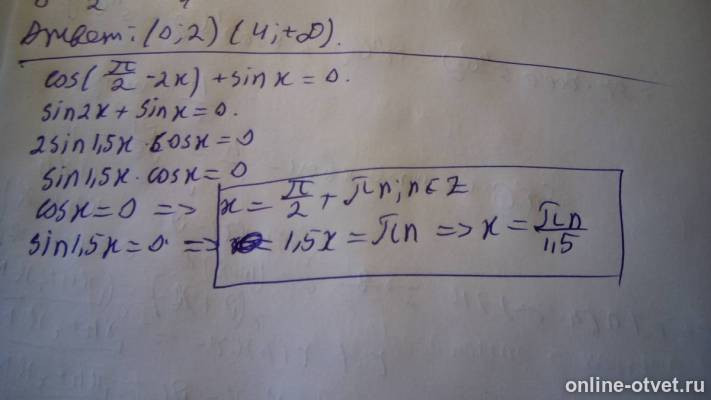 Ответ: (0; 2) (4; +∞).
cos(π/2 - 2x) + sin x = 0.
sin2x + sin x = 0.
2sin1,5x · cosx = 0
sin1,5x · cosx = 0
cosx = 0 => x = π/2 + πn; n∈Z
sin1,5x = 0 => 1,5x = πn => x = πn/1,5
online-otvet.ru